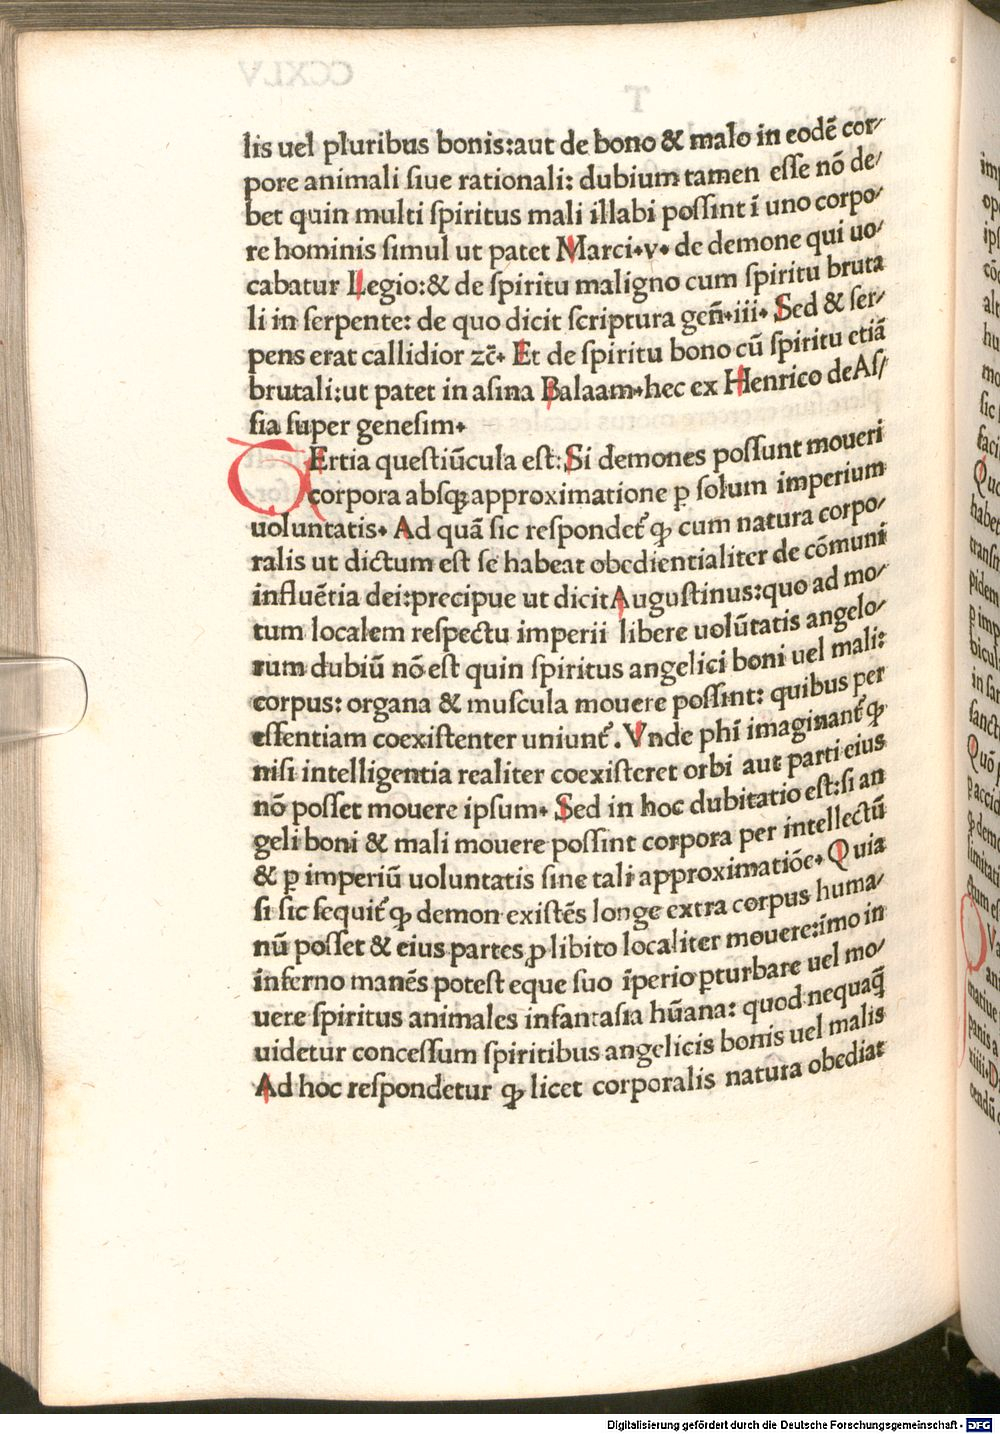 lis uel pluribus bonis:aut de bono & malo in eodē cor⸗
pore animali ſiue rationali: dubium tamen eſſe nō de⸗
bet quin multi ſpiritus mali illabi poſſint ī uno corpo⸗
re hominis ſimul ut patet Marci.v. de demone qui uo⸗
cabatur Legio:& de ſpiritu maligno cum ſpiritu bruta
li in ſerpente: de quo dicit ſcriptura geñ.iii. Sed & ſer⸗
pens erat callidior zc̄. Et de ſpiritu bono cū ſpiritu etiā
brutali:ut patet in aſina Balaam.hec ex Henrico de Aſ⸗
ſia ſuper geneſim.
TErtia queſtiūcula eſt:Si demones poſſunt moueri
corpora abſqꝫ approximatione ꝑ ſolum imperium
uoluntatis. Ad quā ſic reſpondet᷑ ꝙ cum natura corpo⸗
ralis ut dictum eſt ſe habeat obedientialiter de cōmuni
influētia dei:precipue ut dicit Auguſtinus:quo ad mo⸗
tum localem reſpectu imperii libere uolūtatis angelo⸗
rum dubiū nō eſt quin ſpiritus angelici boni uel mali:
corpus: organa & muſcula mouere poſſint: quibus per
eſſentiam coexiſtenter uniunt᷑. Vnde phī imaginant᷑ ꝙ
niſi intelligentia realiter coexiſteret orbi aut parti eius
nō poſſet mouere ipſum. Sed in hoc dubitatio eſt:ſi an
geli boni & mali mouere poſſint corpora per intellectū
& ꝑ imperiū uoluntatis ſine tali approximatiōe. Quia
ſi ſic ſequit᷑ ꝙ demon exiſtēs longe extra corpus huma⸗
nū poſſet & eius partes ꝓ libito localiter mouere:īmo in
inferno manēs poteſt eque ſuo īperio ꝑturbare uel mo⸗
uere ſpiritus animales infantaſia hūana: quod nequaq̄
uidetur conceſſum ſpiritibus angelicis bonis uel malis
Ad hoc reſpondetur ꝙ licet corporalis natura obediat
Digitalisierung gefördert durch die Deutsche Forschungsgemeinschaft - DFG